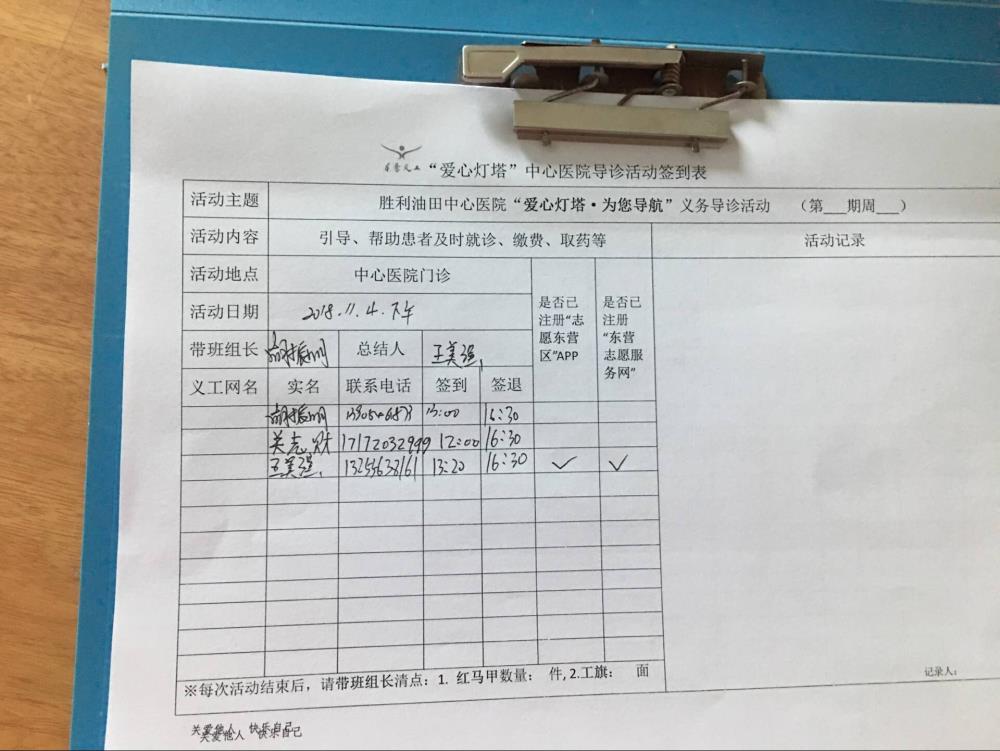 “爱心灯塔”中心医院导诊活动签到表
活动主题 胜利油田中心医院“爱心灯塔·为您导航”义务导诊活动 （第___期周___）
活动内容 引导、帮助患者及时就诊、缴费、取药等 活动记录
活动地点 中心医院门诊
活动日期 2018.11.4.下午
是否已注册“志愿东营区”APP
是否已注册“东营志愿服务网”
带班组长 胡振明 总结人 王美强
义工网名 实名 联系电话 签到 签退
胡振明 13:00 16:30
关志财 17172032999 12:00 16:30
王美强 13255638161 13:20 16:30 ✓ ✓
※每次活动结束后，请带班组长清点：1. 红马甲数量： 件, 2.工旗： 面
记录人：
关爱他人 快乐自己